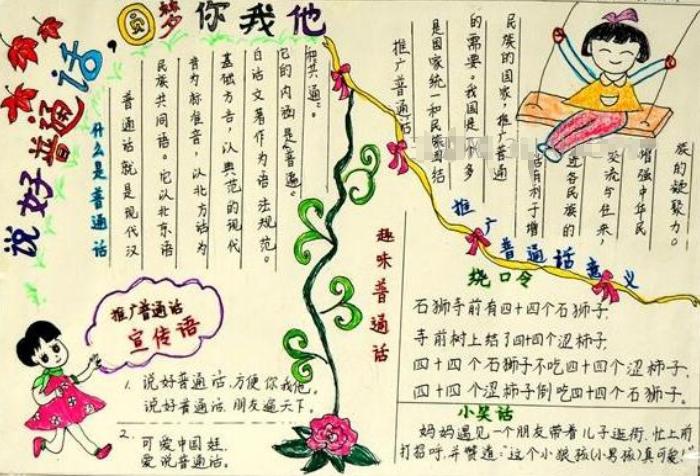 说好普通话,圆梦你我他
什么是普通话
普通话就是现代汉
民族共同语。它以北京语
音为标准音，以北方话为
基础方言，以典范的现代
白话文著作为语法规范。
它的内涵是“普遍”
和共通。
推广普通话
是国家统一和民族团结
的需要。我国是 多
民族的国家，推广普通
话有利于增
进各民族的
交流与往来，
增强中华民
族的凝聚力。
推广普通话意义
推广普通话
宣传语
1. 说好普通话，方便你我他。
说好普通话，朋友遍天下。
2. 可爱中国娃，
爱说普通话。
趣味普通话
绕口令
石狮寺前有四十四个石狮子，
寺前树上结了四十四个涩柿子，
四十四个石狮子不吃四十四个涩柿子，
四十四个涩柿子倒吃四十四个石狮子。
小笑话
妈妈遇见一个朋友带着儿子逛街，忙上前
打招呼，并赞道：“这个小狼孩(小男孩)真可爱！”